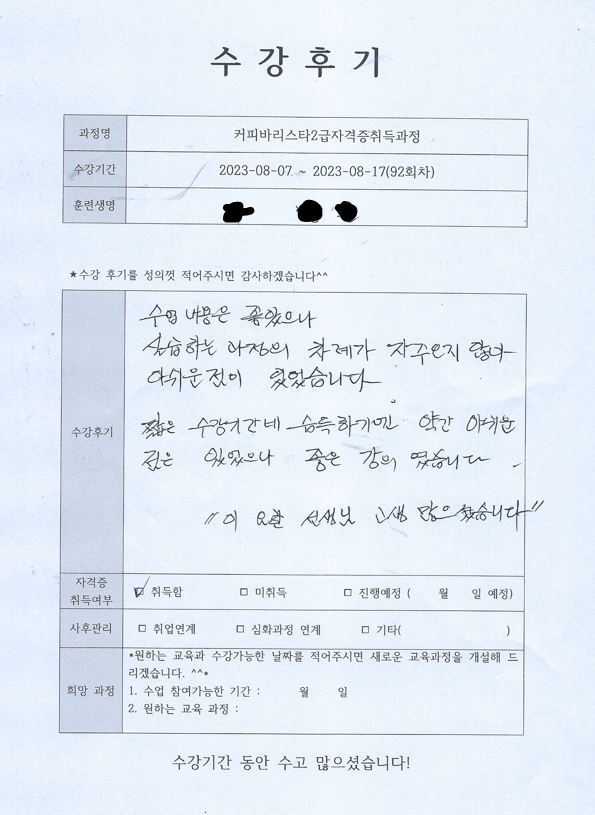 수강후기
과정명 커피바리스타2급자격증취득과정
수강기간 2023-08-07 ~ 2023-08-17(92회차)
훈련생명
★수강 후기를 성의껏 적어주시면 감사하겠습니다^^
수강후기
수업 내용은 좋았으나
실습하는 과정의 차례가 자주오지 않아
아쉬운점이 있었습니다
짧은 수강기간네 습득하기엔 약간 아쉬운
점은 있었으나 좋은 강의 였습니다.
"이 요한 선생님 고생 많으셨습니다"
자격증
취득여부 ☑ 취득함 □ 미취득 □ 진행예정 ( 월 일 예정)
사후관리 □ 취업연계 □ 심화과정 연계 □ 기타( )
희망 과정
*원하는 교육과 수강가능한 날짜를 적어주시면 새로운 교육과정을 개설해 드
리겠습니다. ^^*
1. 수업 참여가능한 기간 : 월 일
2. 원하는 교육 과정 :
수강기간 동안 수고 많으셨습니다!